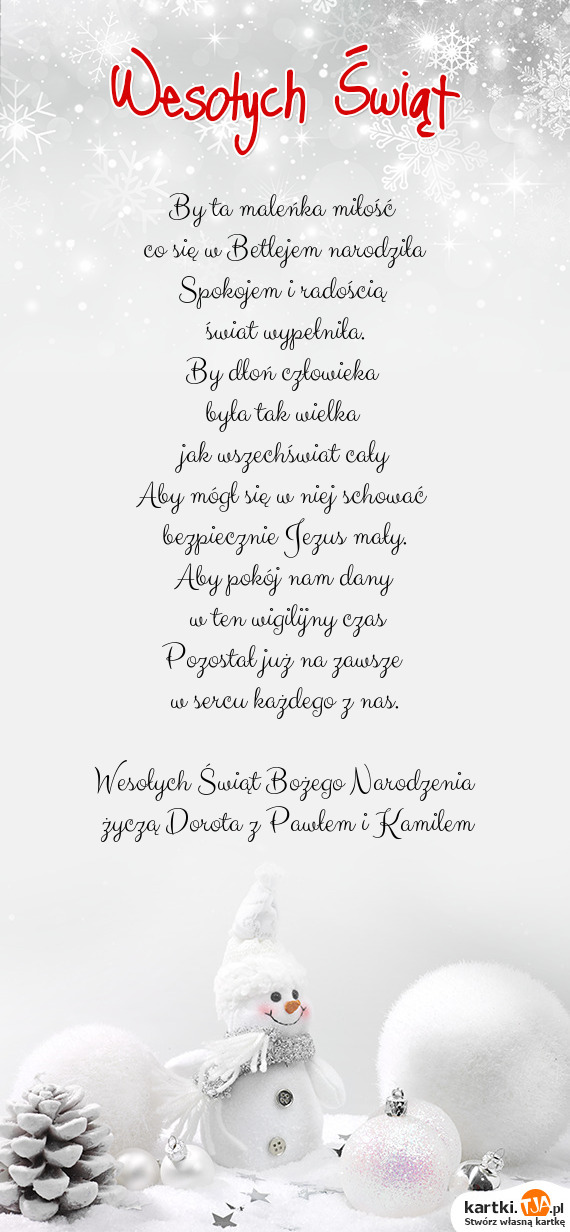 Wesołych Świąt
By ta maleńka miłość
co się w Betlejem narodziła
Spokojem i radością
świat wypełniła.
By dłoń człowieka
była tak wielka
jak wszechświat cały
Aby mógł się w niej schować
bezpiecznie Jezus mały.
Aby pokój nam dany
w ten wigilijny czas
Pozostał już na zawsze
w sercu każdego z nas.
Wesołych Świąt Bożego Narodzenia
życzą Dorota z Pawłem i Kamilem
kartki.TJA.pl
Stwórz własną kartkę